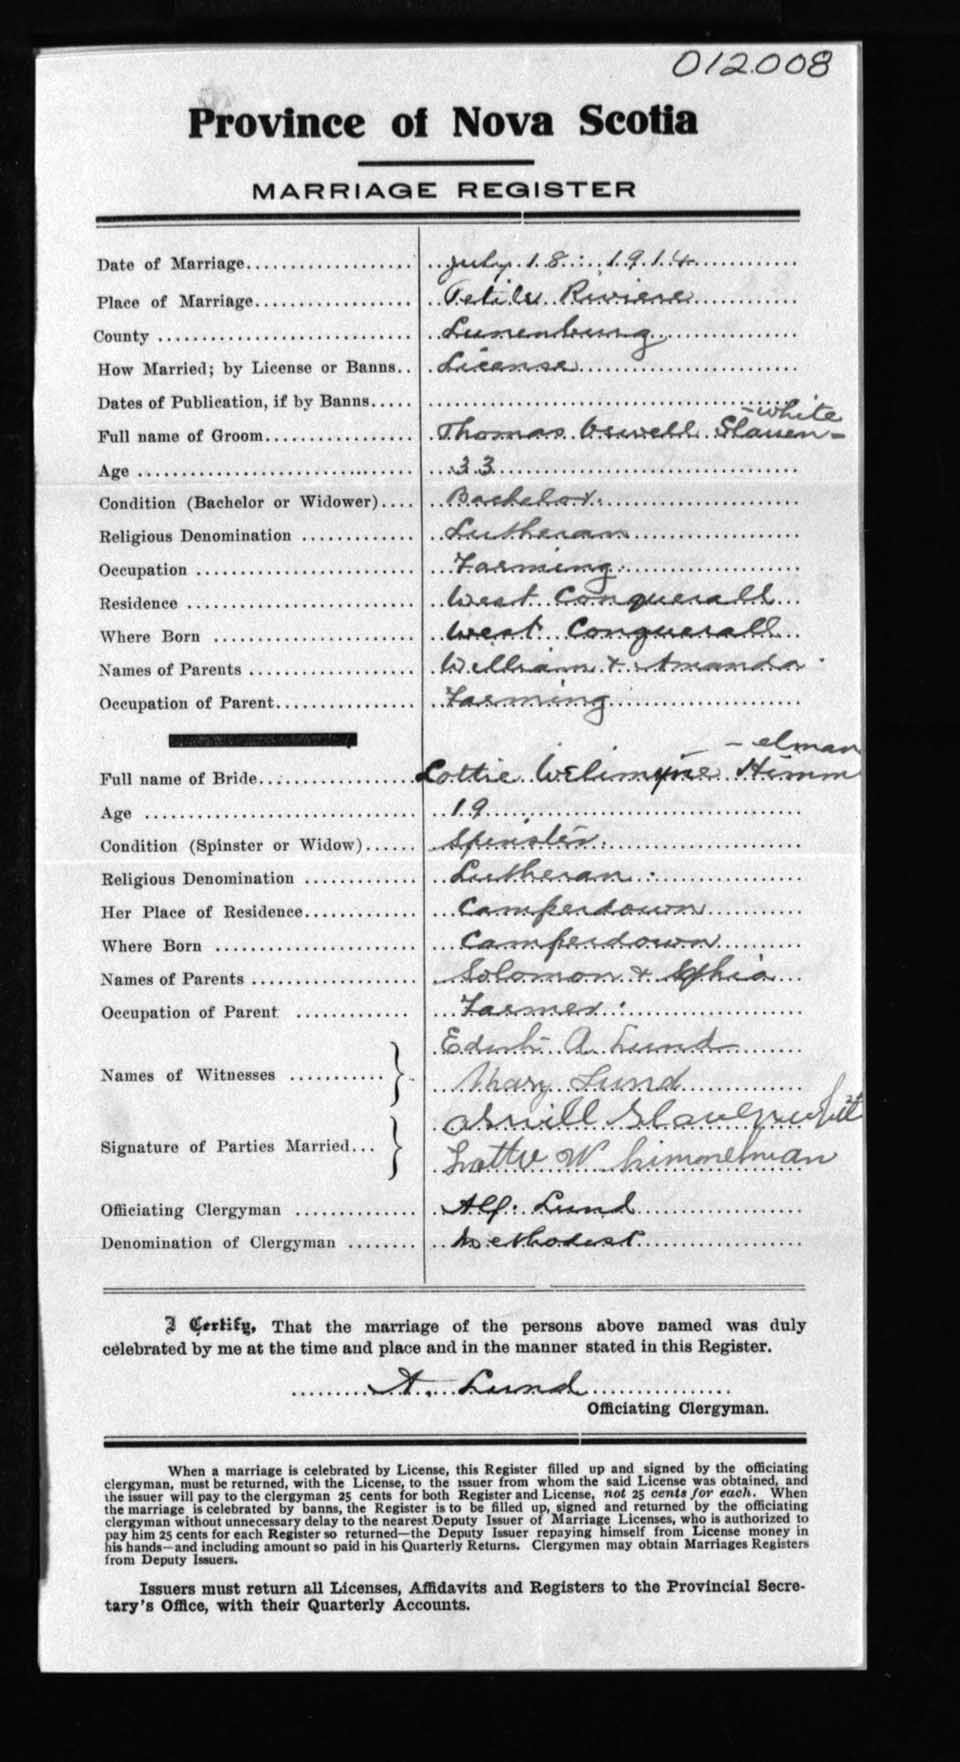 012008
Province of Nova Scotia
MARRIAGE REGISTER
Date of Marriage.................... July 18: 1914
Place of Marriage.................. Petite Riviere
County .............................. Lunenburg
How Married; by License or Banns.. License
Dates of Publication, if by Banns.....
-white
Full name of Groom................. Thomas Orwell Slauen-
Age ................................ 33
Condition (Bachelor or Widower).... Bachelor.
Religious Denomination ............. Lutheran
Occupation ......................... Farming.
Residence .......................... West Conquerall
Where Born ....................... West Conquerall
Names of Parents ................... William & Amanda
Occupation of Parent................ Farming
-elman
Full name of Bride.................. Lottie Welimyne Himm
Age ............................... 19
Condition (Spinster or Widow)...... Spinster.
Religious Denomination ............. Lutheran.
Her Place of Residence............. Camperdown
Where Born ....................... Camperdown
Names of Parents ................... Solomon & Sophia
Occupation of Parent ............. Farmer.
Edith A. Lund
Names of Witnesses ........... } Mary Lund
Signature of Parties Married... } Orwill Slauenwhit
Lottie W himmelman
Officiating Clergyman .............. Alf. Lund
Denomination of Clergyman ........ Methodist
I Certify, That the marriage of the persons above named was duly
celebrated by me at the time and place and in the manner stated in this Register.
A. Lund
Officiating Clergyman.
When a marriage is celebrated by License, this Register filled up and signed by the officiating
clergyman, must be returned, with the License, to the issuer from whom the said License was obtained, and
the issuer will pay to the clergyman 25 cents for both Register and License, not 25 cents for each. When
the marriage is celebrated by banns, the Register is to be filled up, signed and returned by the officiating
clergyman without unnecessary delay to the nearest Deputy Issuer of Marriage Licenses, who is authorized to
pay him 25 cents for each Register so returned—the Deputy Issuer repaying himself from License money in
his hands—and including amount so paid in his Quarterly Returns. Clergymen may obtain Marriages Registers
from Deputy Issuers.
Issuers must return all Licenses, Affidavits and Registers to the Provincial Secre-
tary's Office, with their Quarterly Accounts.